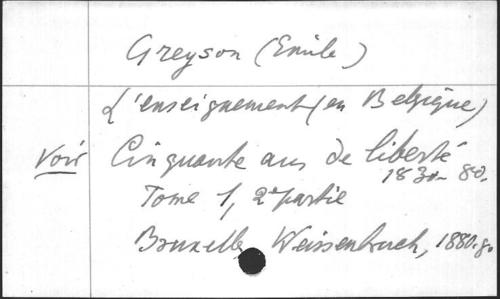 Greyson (Emile)
L'enseignement (en Belgique)
Voir Cinquante ans de liberté
1830-80.
Tome 1, 2e partie
Bruxelles, Weissenbruch, 1880. 8o